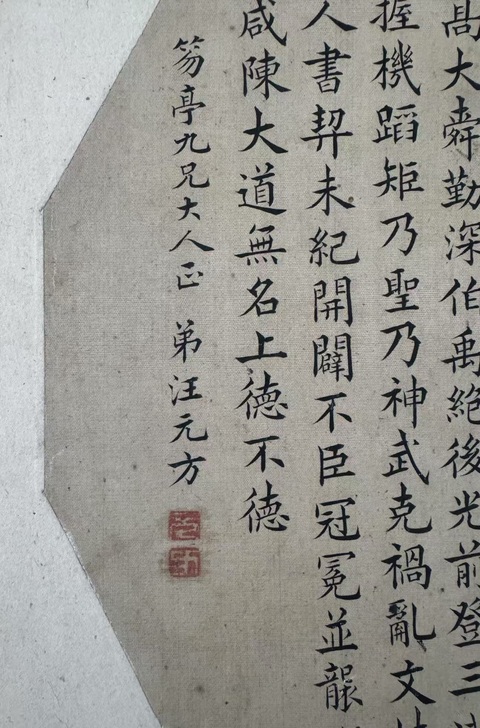 高大舜勤深伯禹絶後光前登三
握機蹈矩乃聖乃神武克禍亂文
人書契未紀開闢不臣冠冕並襲
咸陳大道無名上德不德
笏亭九兄大人正 弟汪元方